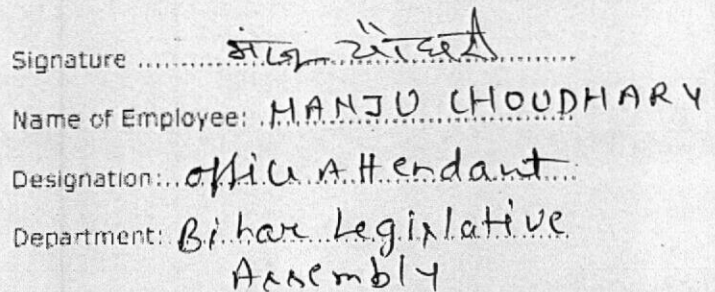 Signature ............ मंजू चौधरी ............
Name of Employee: MANJU CHOUDHARY
Designation: office Attendant
Department: Bihar Legislative
Assembly